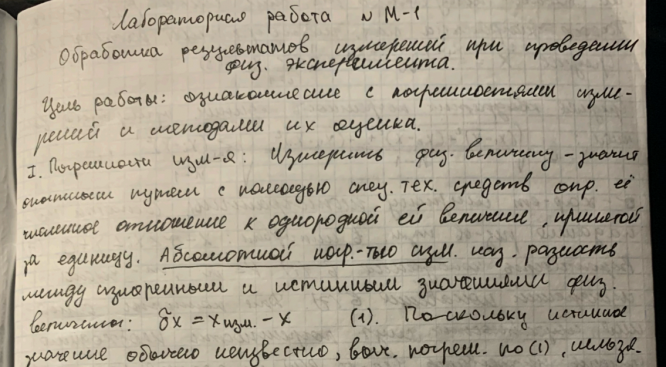 Лабораторная работа N М-1
Обработка результатов измерений при проведении
физ. эксперимента.
Цель работы: ознакомление с погрешностями изме-
рений и методами их оценка.
I. Погрешности изм-я: Измерить физ. величину - значит
опытным путем с помощью спец. тех. средств опр. её
численное отношение к однородной ей величине, принятой
за единицу. Абсолютной погр.-тью изм. наз. разность
между измеренным и истинным значениями физ.
величины: δx = x изм. - x (1). Поскольку истинное
значение обычно неизвестно, выч. погреш. по (1), нельзя.